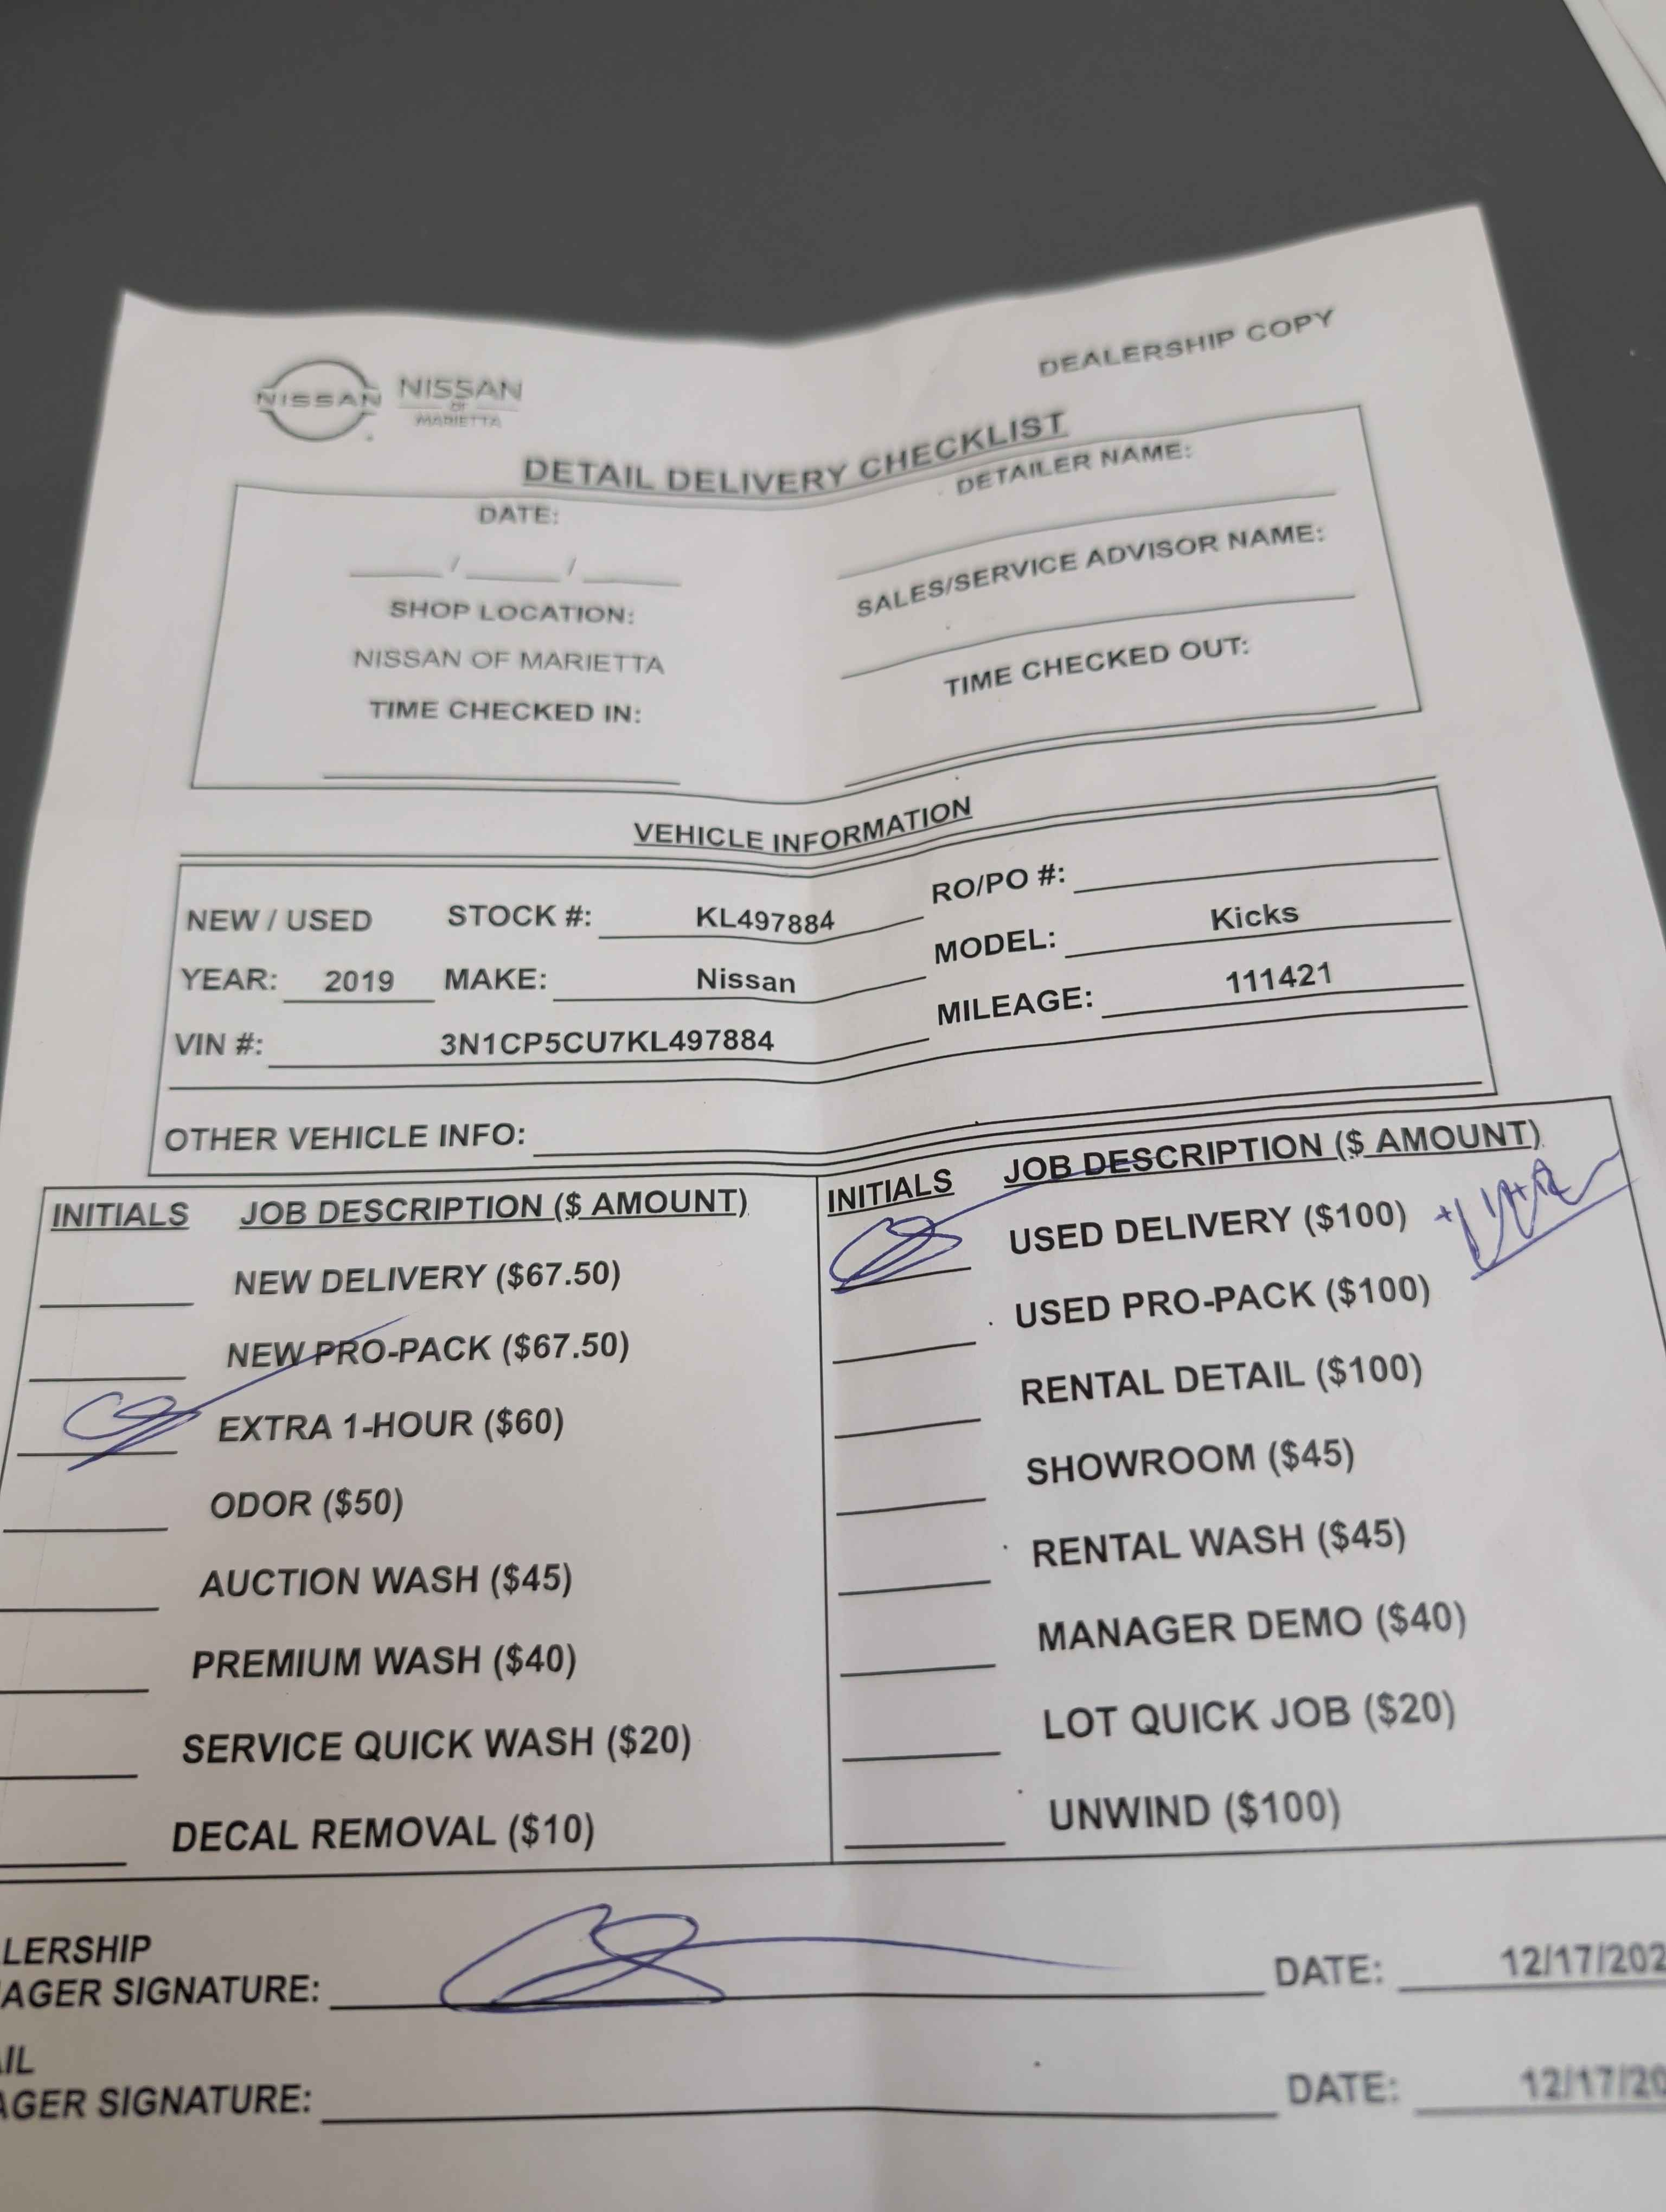 DEALERSHIP COPY
NISSAN NISSAN
OF
MARIETTA
DETAIL DELIVERY CHECKLIST
DATE:
/ /
SHOP LOCATION:
NISSAN OF MARIETTA
TIME CHECKED IN:
DETAILER NAME:
SALES/SERVICE ADVISOR NAME:
TIME CHECKED OUT:
VEHICLE INFORMATION
NEW / USED STOCK #: KL497884 RO/PO #:
YEAR: 2019 MAKE: Nissan MODEL: Kicks
VIN #: 3N1CP5CU7KL497884 MILEAGE: 111421
OTHER VEHICLE INFO:
INITIALS JOB DESCRIPTION ($ AMOUNT)
NEW DELIVERY ($67.50)
NEW PRO-PACK ($67.50)
EXTRA 1-HOUR ($60)
ODOR ($50)
AUCTION WASH ($45)
PREMIUM WASH ($40)
SERVICE QUICK WASH ($20)
DECAL REMOVAL ($10)
INITIALS JOB DESCRIPTION ($ AMOUNT)
USED DELIVERY ($100)
USED PRO-PACK ($100)
RENTAL DETAIL ($100)
SHOWROOM ($45)
RENTAL WASH ($45)
MANAGER DEMO ($40)
LOT QUICK JOB ($20)
UNWIND ($100)
LERSHIP
AGER SIGNATURE: DATE: 12/17/202
IL
AGER SIGNATURE: DATE: 12/17/20